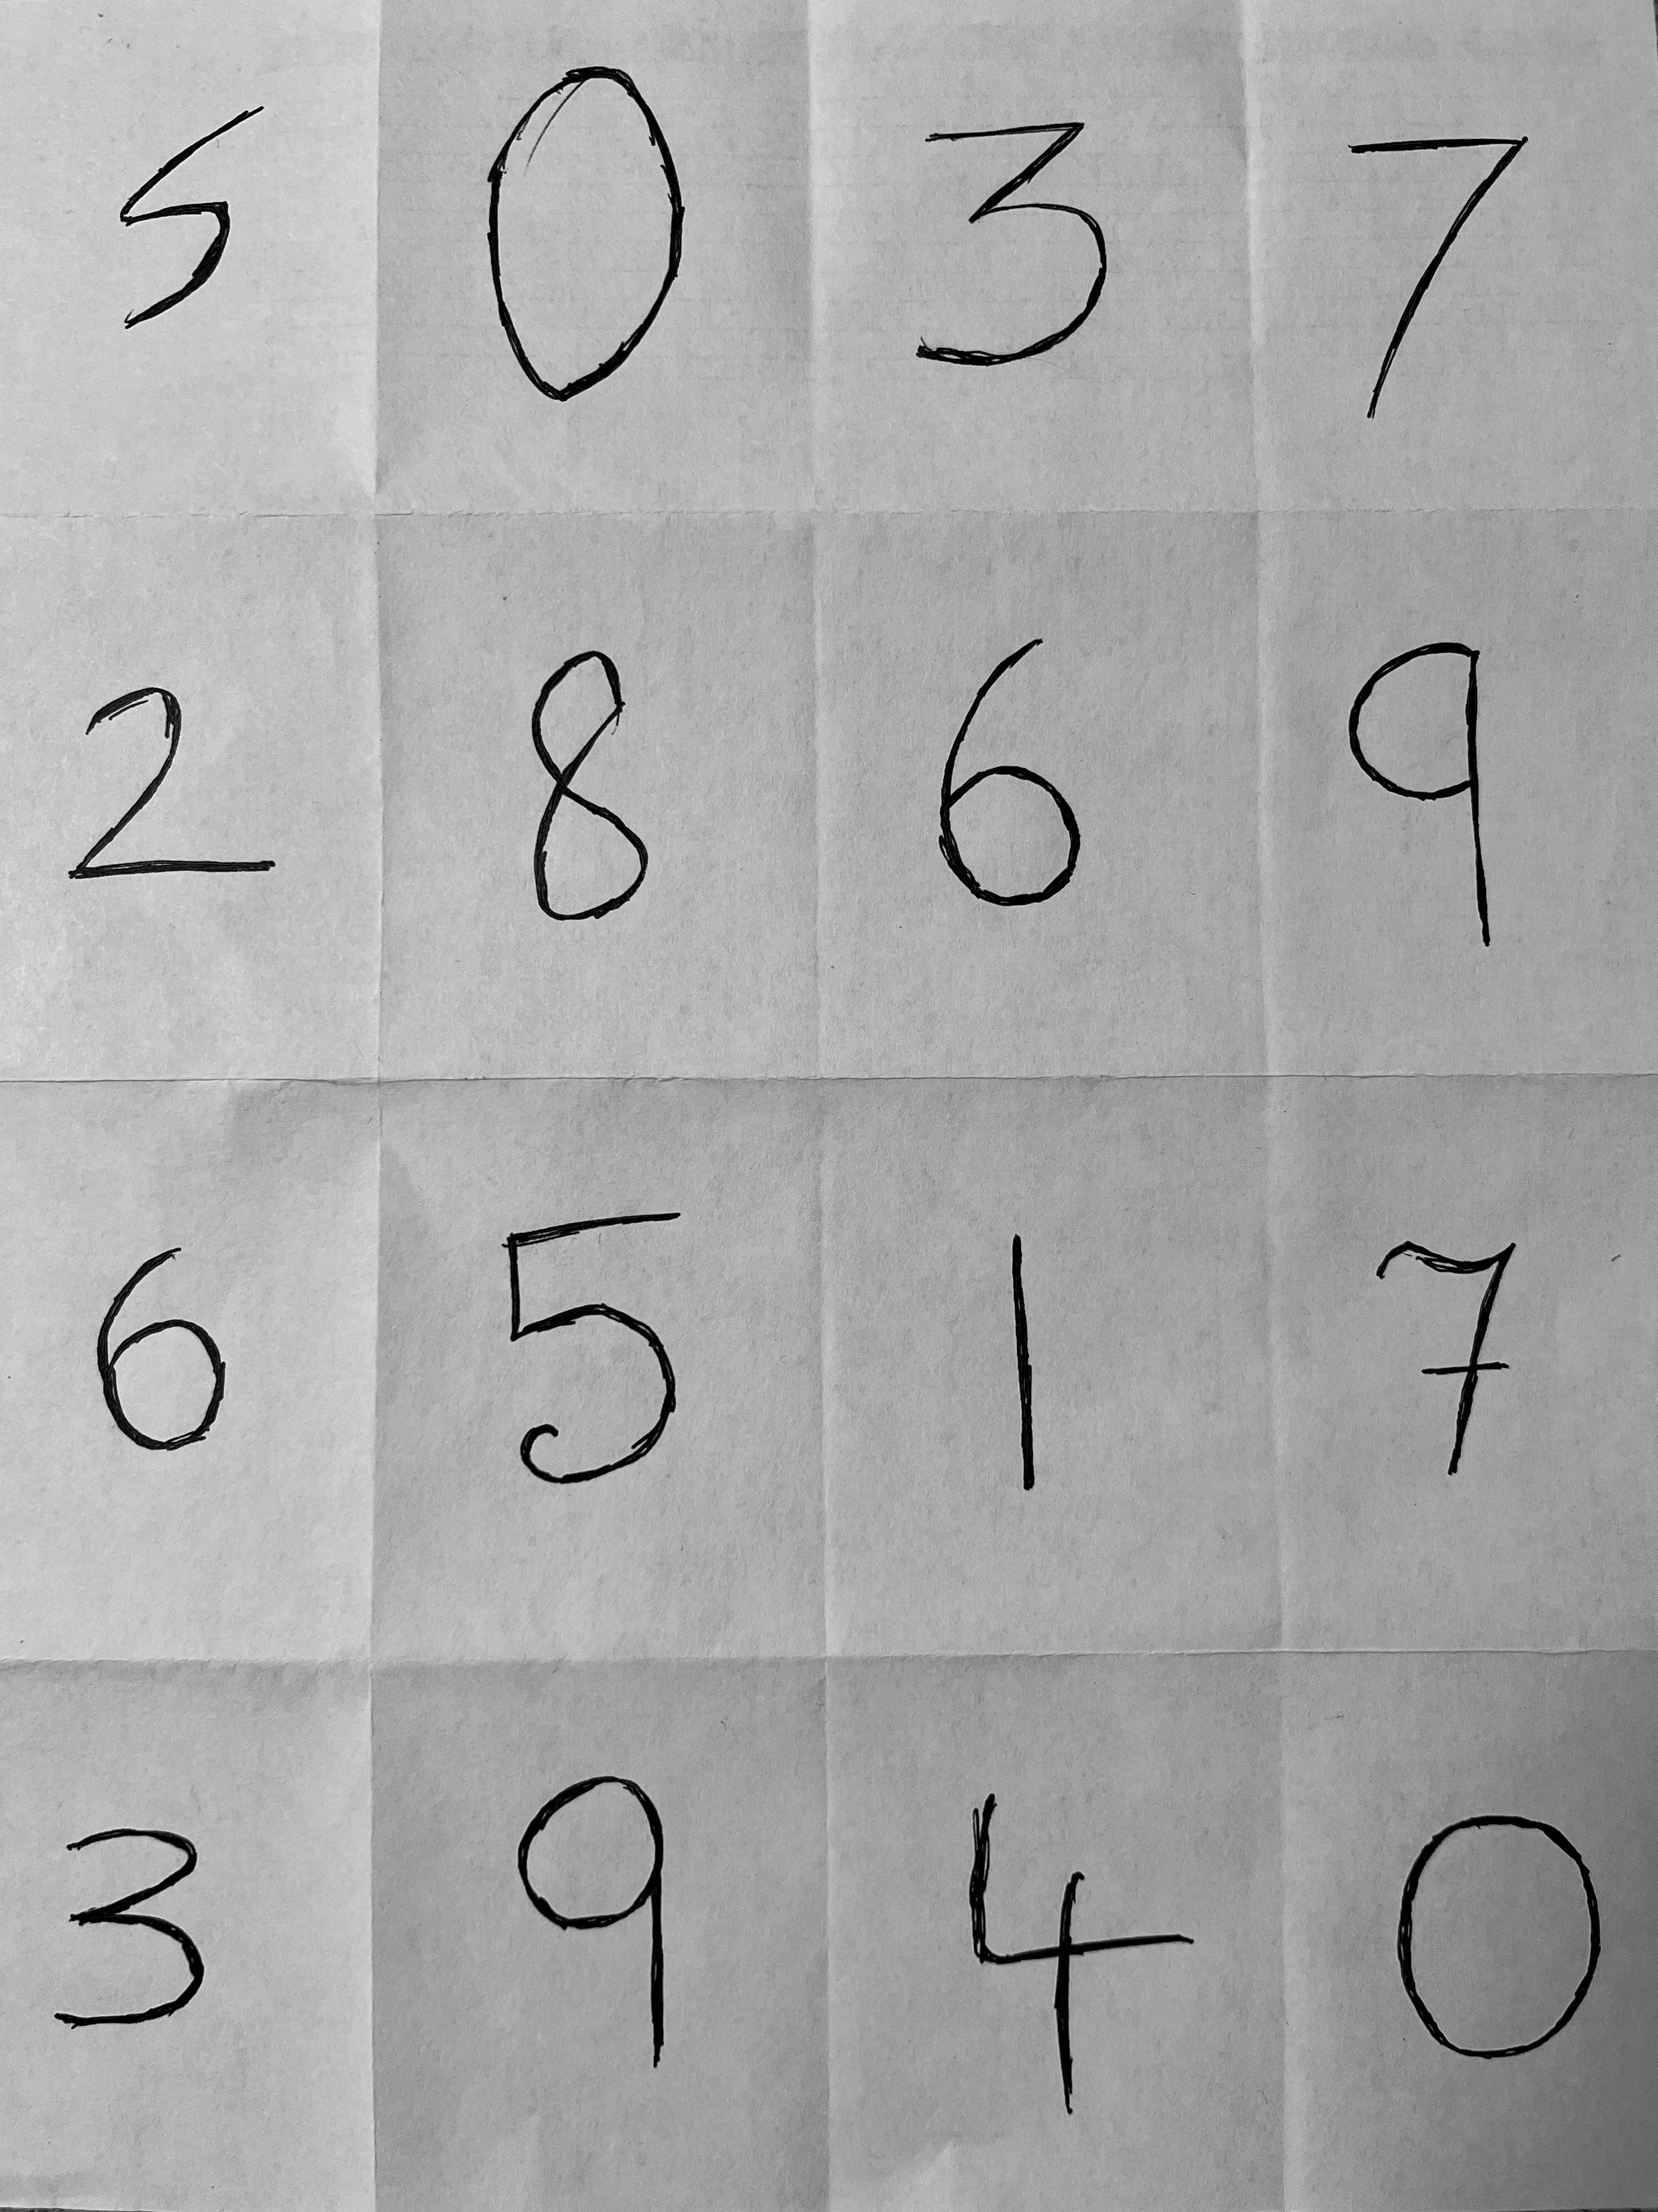 5 0 3 7
2 8 6 9
6 5 1 7
3 9 4 0